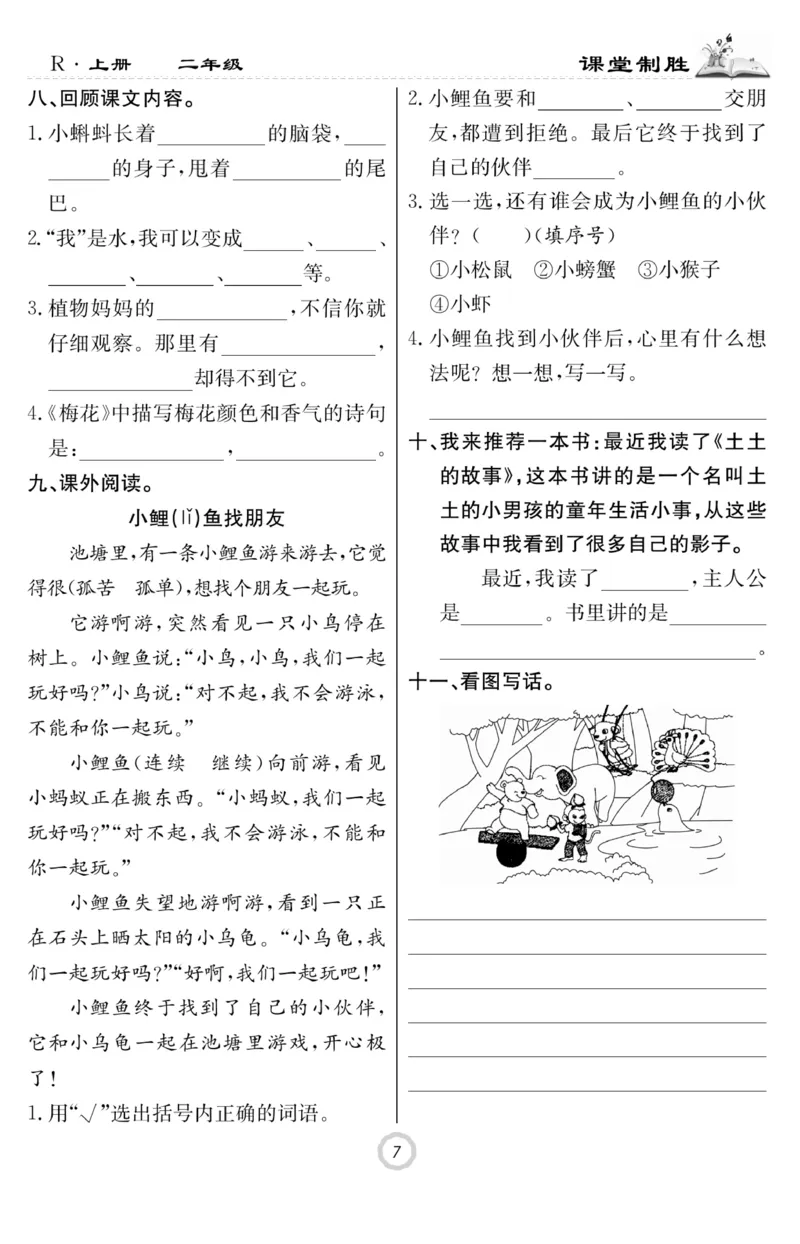 R·上册　二年级
课堂制胜
八、回顾课文内容。
1.小蝌蚪长着__________的脑袋，____
______的身子，甩着__________的尾
巴。
2.“我”是水，我可以变成______、______、
________、________、________等。
3.植物妈妈的____________，不信你就
仔细观察。那里有______________，
______________却得不到它。
4.《梅花》中描写梅花颜色和香气的诗句
是：______________，______________。
九、课外阅读。
小鲤(lǐ)鱼找朋友
池塘里，有一条小鲤鱼游来游去，它觉
得很(孤苦　孤单)，想找个朋友一起玩。
它游啊游，突然看见一只小鸟停在
树上。小鲤鱼说：“小鸟，小鸟，我们一起
玩好吗？”小鸟说：“对不起，我不会游泳，
不能和你一起玩。”
小鲤鱼(连续　继续)向前游，看见
小蚂蚁正在搬东西。“小蚂蚁，我们一起
玩好吗？”“对不起，我不会游泳，不能和
你一起玩。”
小鲤鱼失望地游啊游，看到一只正
在石头上晒太阳的小乌龟。“小乌龟，我
们一起玩好吗？”“好啊，我们一起玩吧！”
小鲤鱼终于找到了自己的小伙伴，
它和小乌龟一起在池塘里游戏，开心极
了！
1.用“√”选出括号内正确的词语。
2.小鲤鱼要和________、________交朋
友，都遭到拒绝。最后它终于找到了
自己的伙伴________。
3.选一选，还有谁会成为小鲤鱼的小伙
伴？(　　)(填序号)
①小松鼠　②小螃蟹　③小猴子
④小虾
4.小鲤鱼找到小伙伴后，心里有什么想
法呢？想一想，写一写。
十、我来推荐一本书：最近我读了《土土
的故事》，这本书讲的是一个名叫土
土的小男孩的童年生活小事，从这些
故事中我看到了很多自己的影子。
最近，我读了________，主人公
是________。书里讲的是________
______________________________。
十一、看图写话。
7